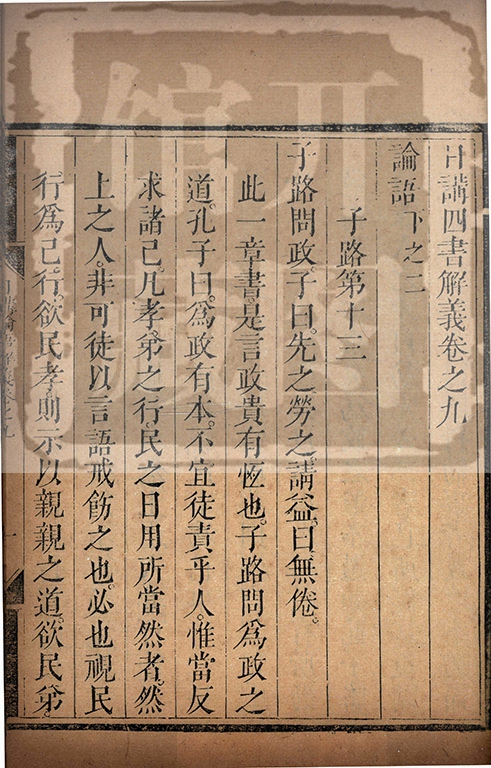 日講四書解義卷之九
論語下之二
子路第十三
子路問政。子曰。先之勞之。請益。曰無倦。
此一章書。是言政貴有恆也。子路問爲政之
道。孔子曰。爲政有本。不宜徒責乎人。惟當反
求諸己。凡孝弟之行。民之日用所當然者。然
上之人。非可徒以言語戒飭之也。必也視民
行爲己行。欲民孝。則示以親親之道。欲民弟。